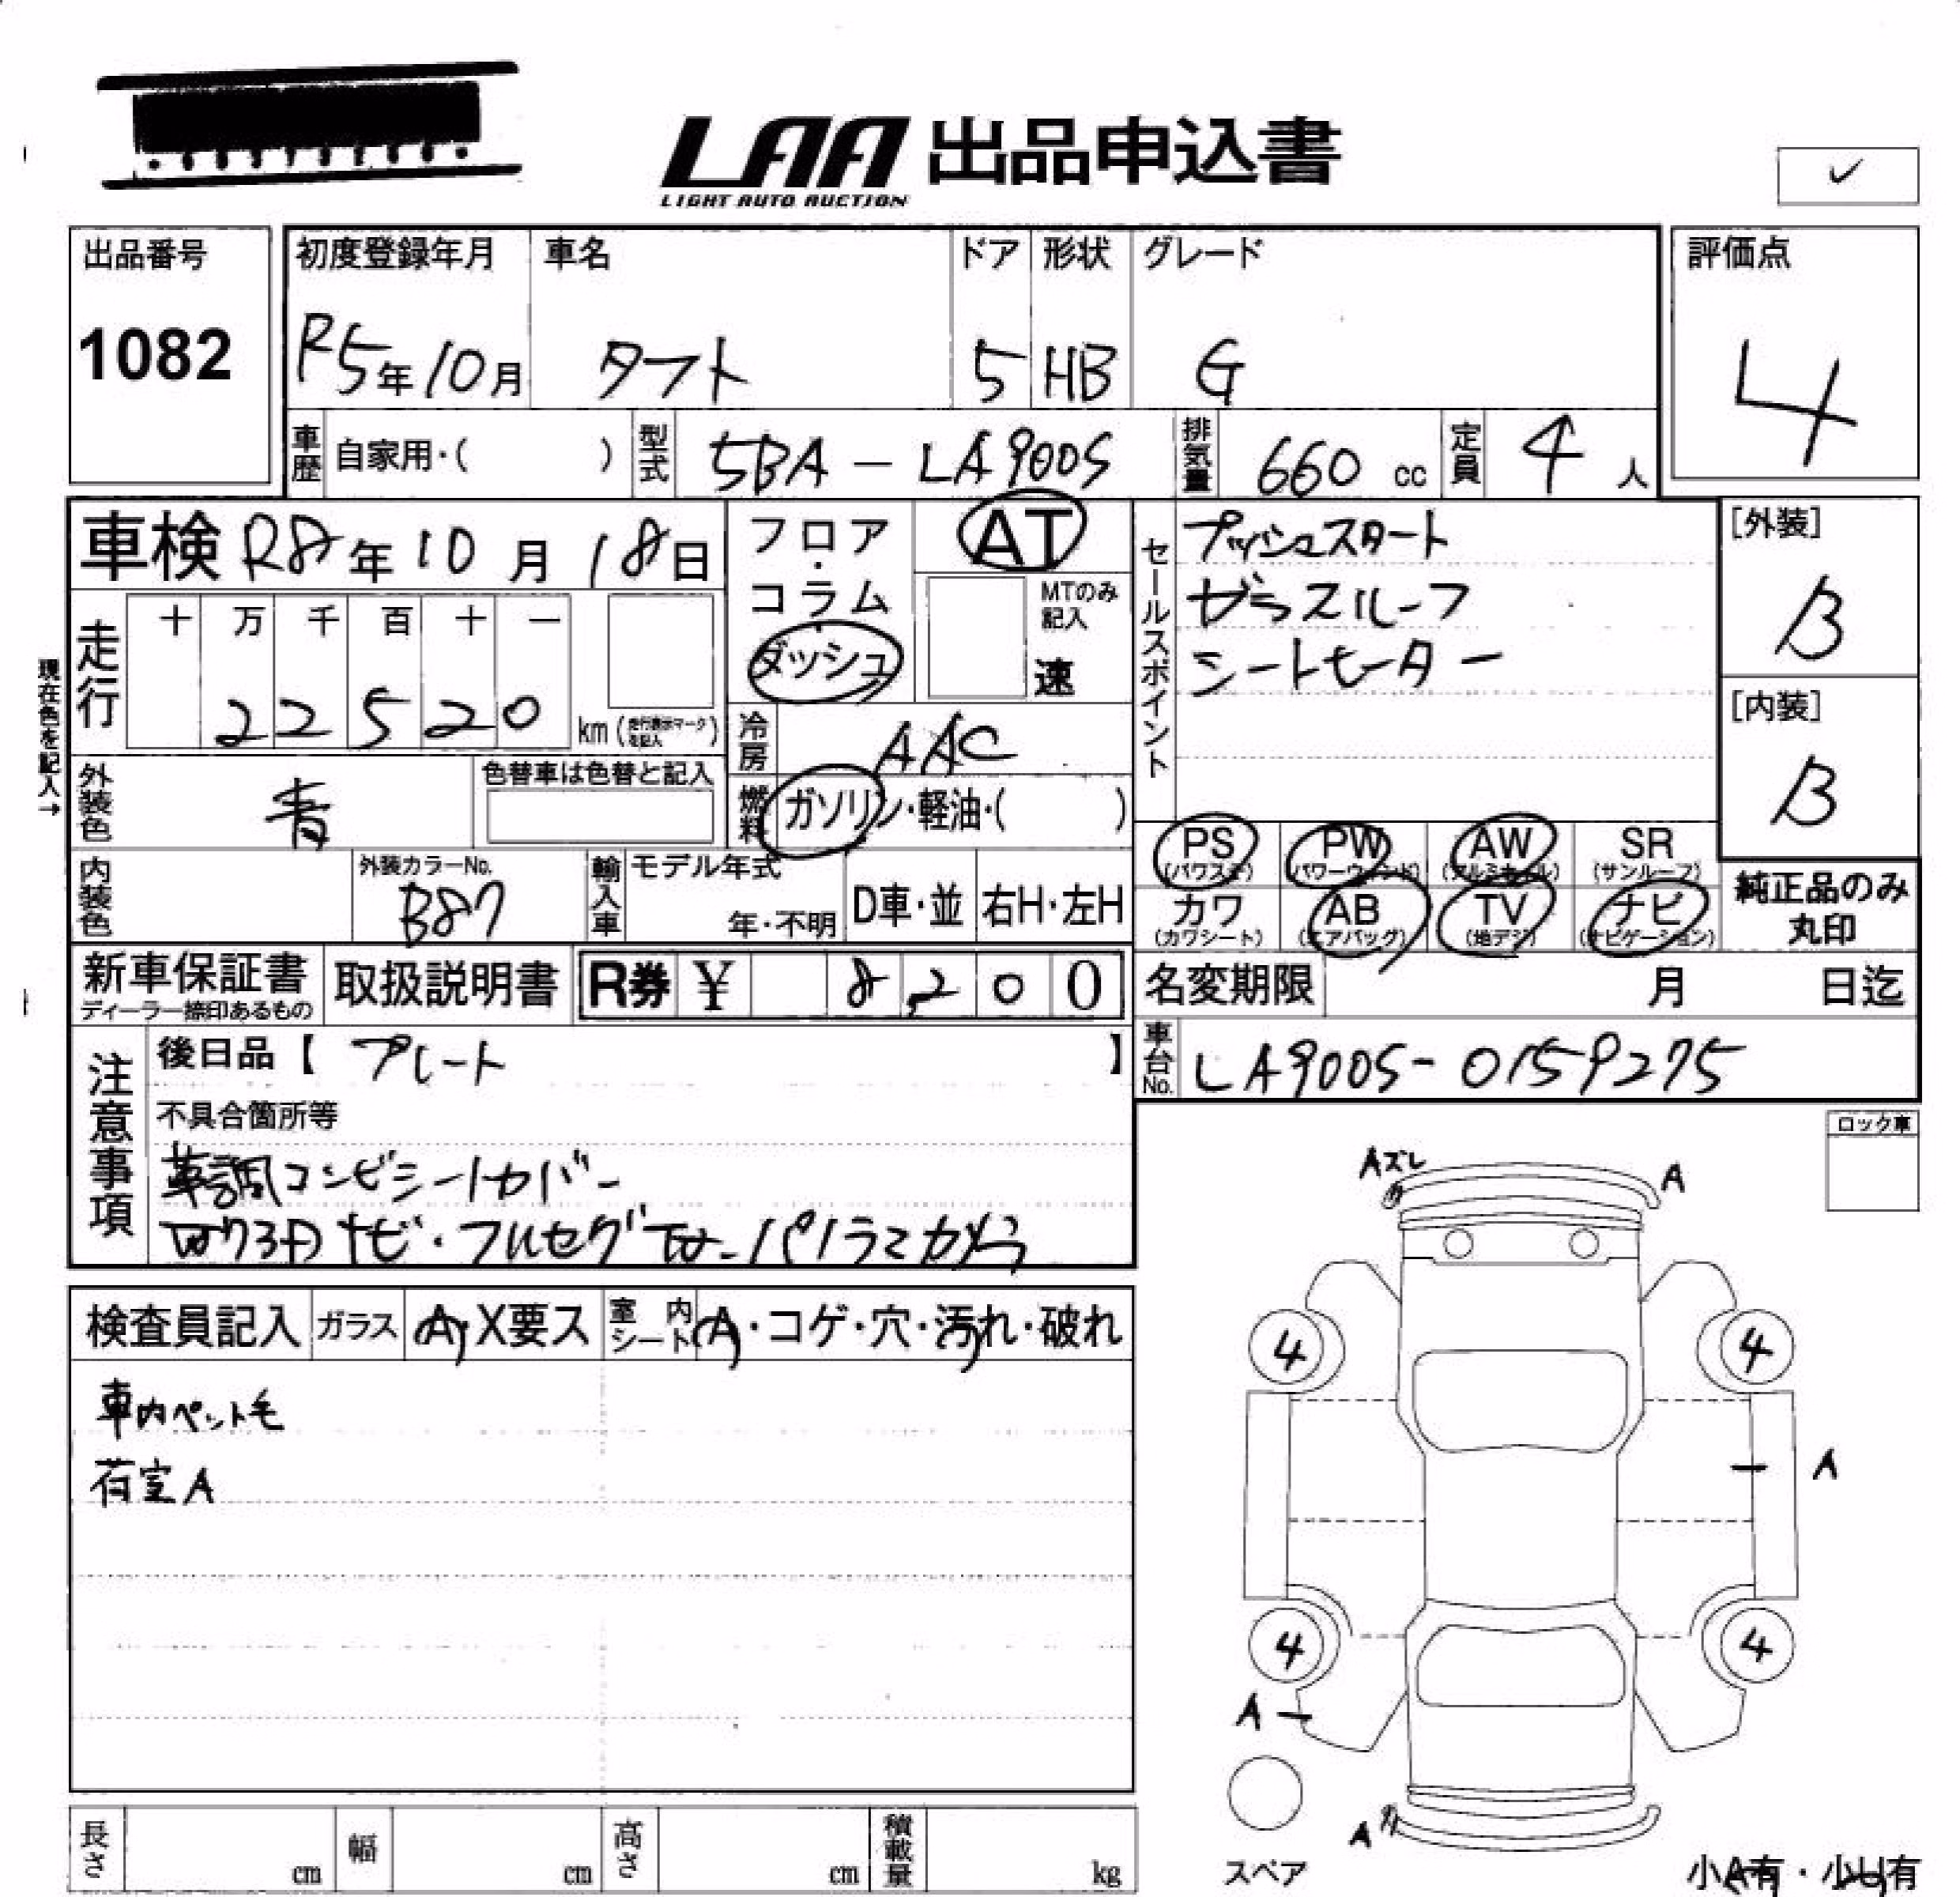 LAA 出品申込書
LIGHT AUTO AUCTION
出品番号
1082
初度登録年月
R5年10月
車名
タフト
ドア
5
形状
HB
グレード
G
評価点
4
車歴 自家用・( )
型式 5BA-LA900S
排気量 660 cc
定員 4 人
車検 R8年10月18日
走行 十 万 千 百 十 一
2 2 5 2 0 km (走行表示マークを記入)
現在色を記入→
外装色 青
色替車は色替と記入
内装色
外装カラーNo.
B87
フロア・コラム・ダッシュ
AT
MTのみ記入
速
冷房 AAC
燃料 ガソリン・軽油・( )
輸入車 モデル年式
年・不明
D車・並
右H・左H
セールスポイント
プッシュスタート
ガラスルーフ
シートヒーター
[外装]
B
[内装]
B
PS (パワステ) PW (パワーウィンド) AW (アルミホイル) SR (サンルーフ)
カワ (カワシート) AB (エアバッグ) TV (地デジ) ナビ (ナビゲーション)
純正品のみ丸印
新車保証書
ディーラー捺印あるもの
取扱説明書
R券 ¥ 8,200
名変期限 月 日迄
車台No. LA900S-0159275
注意事項
後日品【 プレート 】
不具合箇所等
革調コンビシートカバー
ナビ・フルセグTV・パノラマカメラ
ロック車
検査員記入
ガラス A・X要ス
室内シート A・コゲ・穴・汚れ・破れ
車内ペット毛
荷室A
Aズレ
A
4
4
A
4
4
A
A
スペア
小A有・小U有
長さ cm
幅 cm
高さ cm
積載量 kg